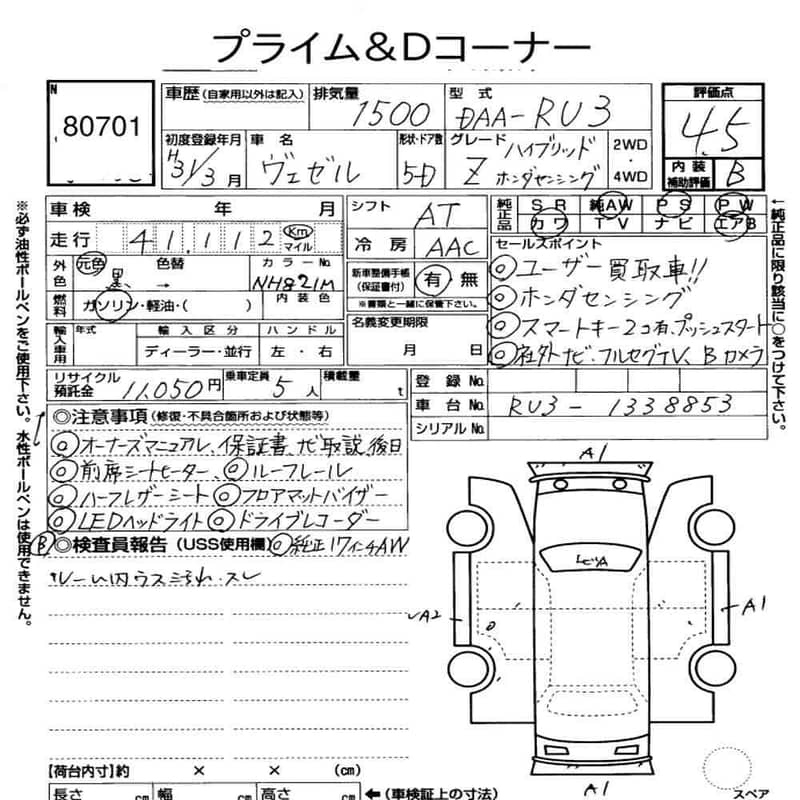 プライム&Dコーナー
N
80701
車歴(自家用以外は記入)
排気量
1500
型式
DAA-RU3
評価点
4.5
初度登録年月
H31/3月
車名
ヴェゼル
形状・ドア数
5D
グレード
ハイブリッド
Z ホンダセンシング
2WD
・
4WD
内装
補助評価
B
車検 年 月
走行 41,112 Km
マイル
シフト
AT
冷房
AAC
純正品
SR 純AW PS PW
カワ TV ナビ エアB
外色
元色
黒
色替
→
カラーNo
NH821M
燃料
ガソリン・軽油・( )
内装色
新車整備手帳
(保証書付)
有・無
※書類と一緒に保管下さい。
セールスポイント
◎ユーザー買取車!!
◎ホンダセンシング
◎スマートキー2コ有、プッシュスタート
◎社外ナビ、フルセグTV、Bカメラ
輸入車用
年式
輸入区分
ディーラー・並行
ハンドル
左・右
名義変更期限
月 日
リサイクル
預託金
11,050円
乗車定員
5人
積載量
t
登録No.
車台No.
RU3-1338853
シリアルNo.
◎注意事項(修復・不具合箇所および状態等)
◎オーナーズマニュアル、保証書、ナビ取説、後日
◎前席シートヒーター、◎ルーフレール
◎ハーフレザーシート◎フロアマットバイザー
◎LEDヘッドライト◎ドライブレコーダー
B
◎検査員報告(USS使用欄)◎純正17インチAW
ルーム内ウス汚れ・スレ
A1
A2
A1
A1
スペア
【荷台内寸】約 × × (cm)
長さ cm 幅 cm 高さ cm ←(車検証上の寸法)
※必ず油性ボールペンをご使用下さい。水性ボールペンは使用できません。
←純正品に限り該当に○をつけて下さい。